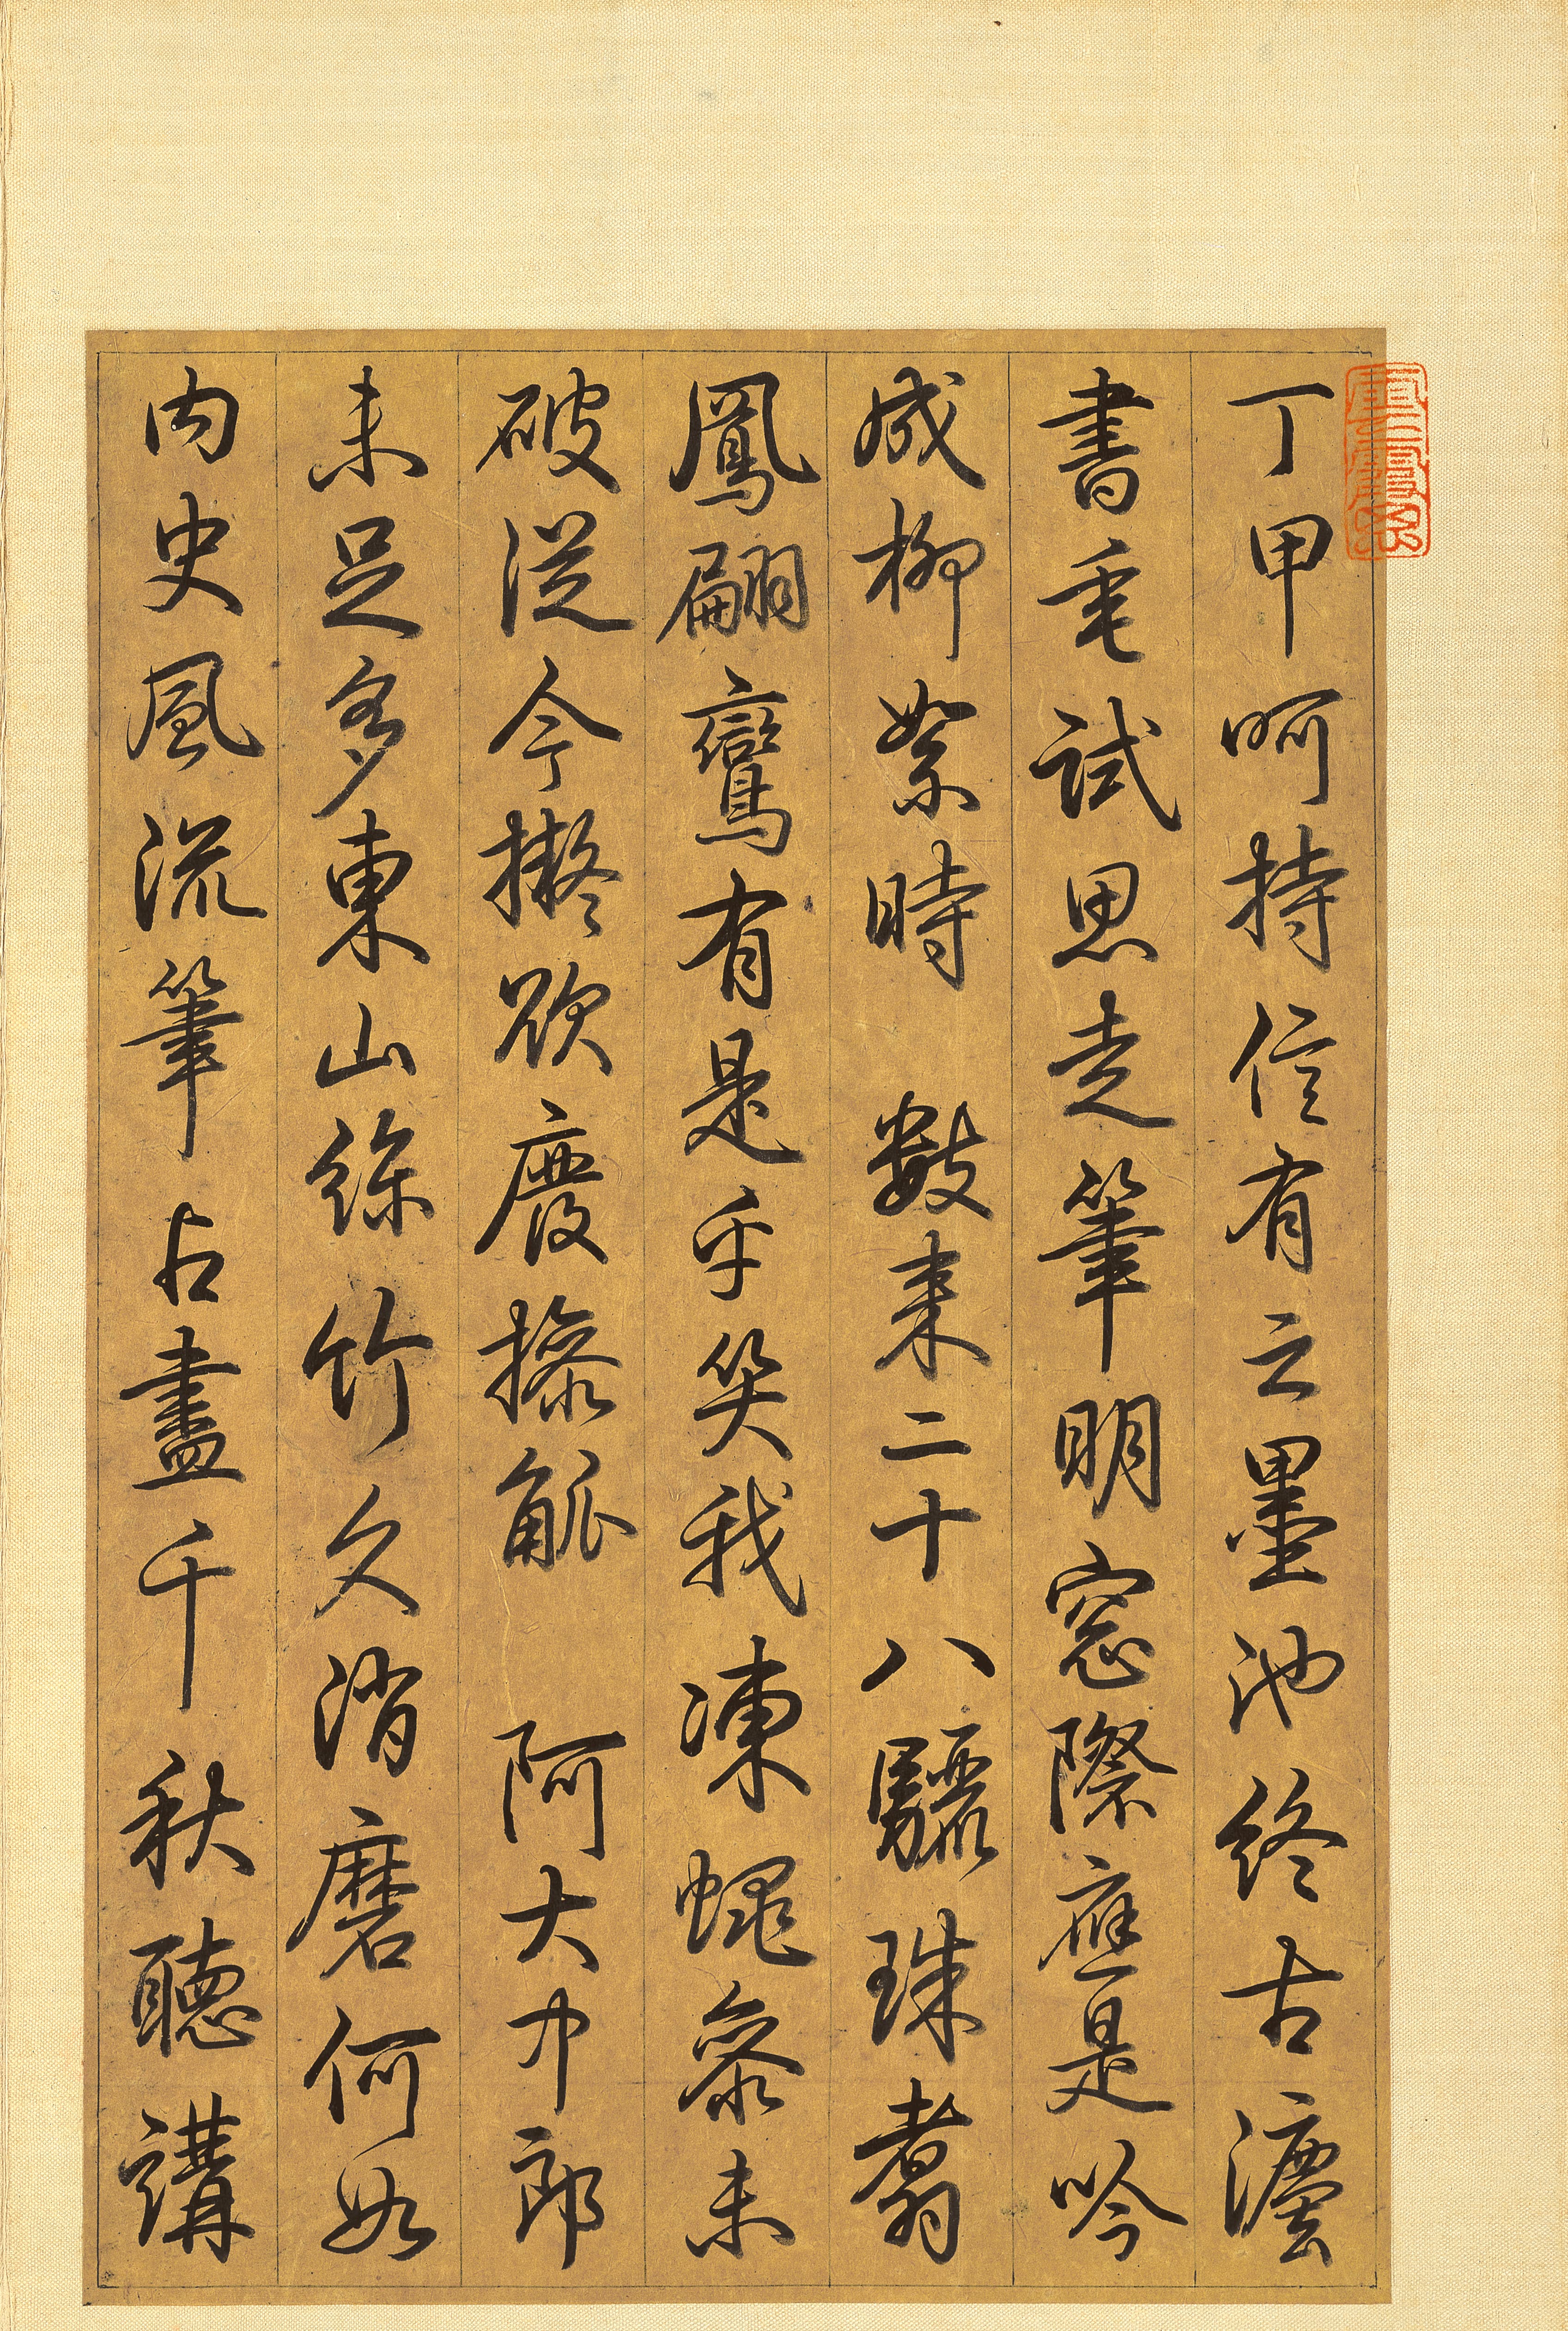 丁甲呵持信有之墨池終古灋
書垂試思走筆明窓際應是吟
成柳絮時 數来二十八驪珠翥
鳳翩鸞有是乎笑我凍蠅參未
破從今擬欲廢操觚 阿大中郎
未足多東山絲竹久消磨何如
内史風流筆占盡千秋聽講